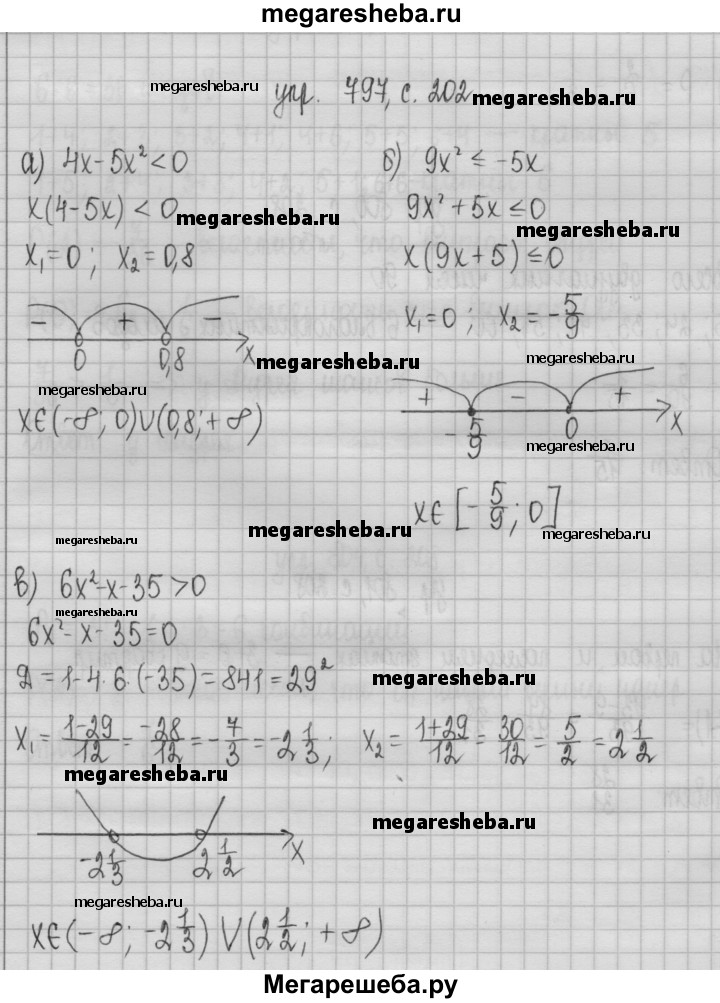 megaresheba.ru
megaresheba.ru
упр. 797, с. 202 megaresheba.ru
а) 4x-5x²<0
x(4-5x)<0 megaresheba.ru
x₁=0; x₂=0,8
- + -
0 0,8 x
megaresheba.ru
megaresheba.ru
x∈(-∞; 0)∪(0,8; +∞)
б) 9x²≤-5x
9x²+5x≤0
megaresheba.ru
x(9x+5)≤0
x₁=0; x₂=-5/9
megaresheba.ru
+ - +
-5/9 0 x
megaresheba.ru
x∈[-5/9; 0]
megaresheba.ru
megaresheba.ru
megaresheba.ru
в) 6x²-x-35>0
megaresheba.ru
6x²-x-35=0
Д=1-4·6·(-35)=841=29² megaresheba.ru
x₁=(1-29)/12=-28/12=-7/3=-2 1/3; x₂=(1+29)/12=30/12=5/2=2 1/2
megaresheba.ru
megaresheba.ru
-2 1/3 2 1/2 x
megaresheba.ru
x∈(-∞; -2 1/3)∪(2 1/2; +∞)
Мегарешеба.ру